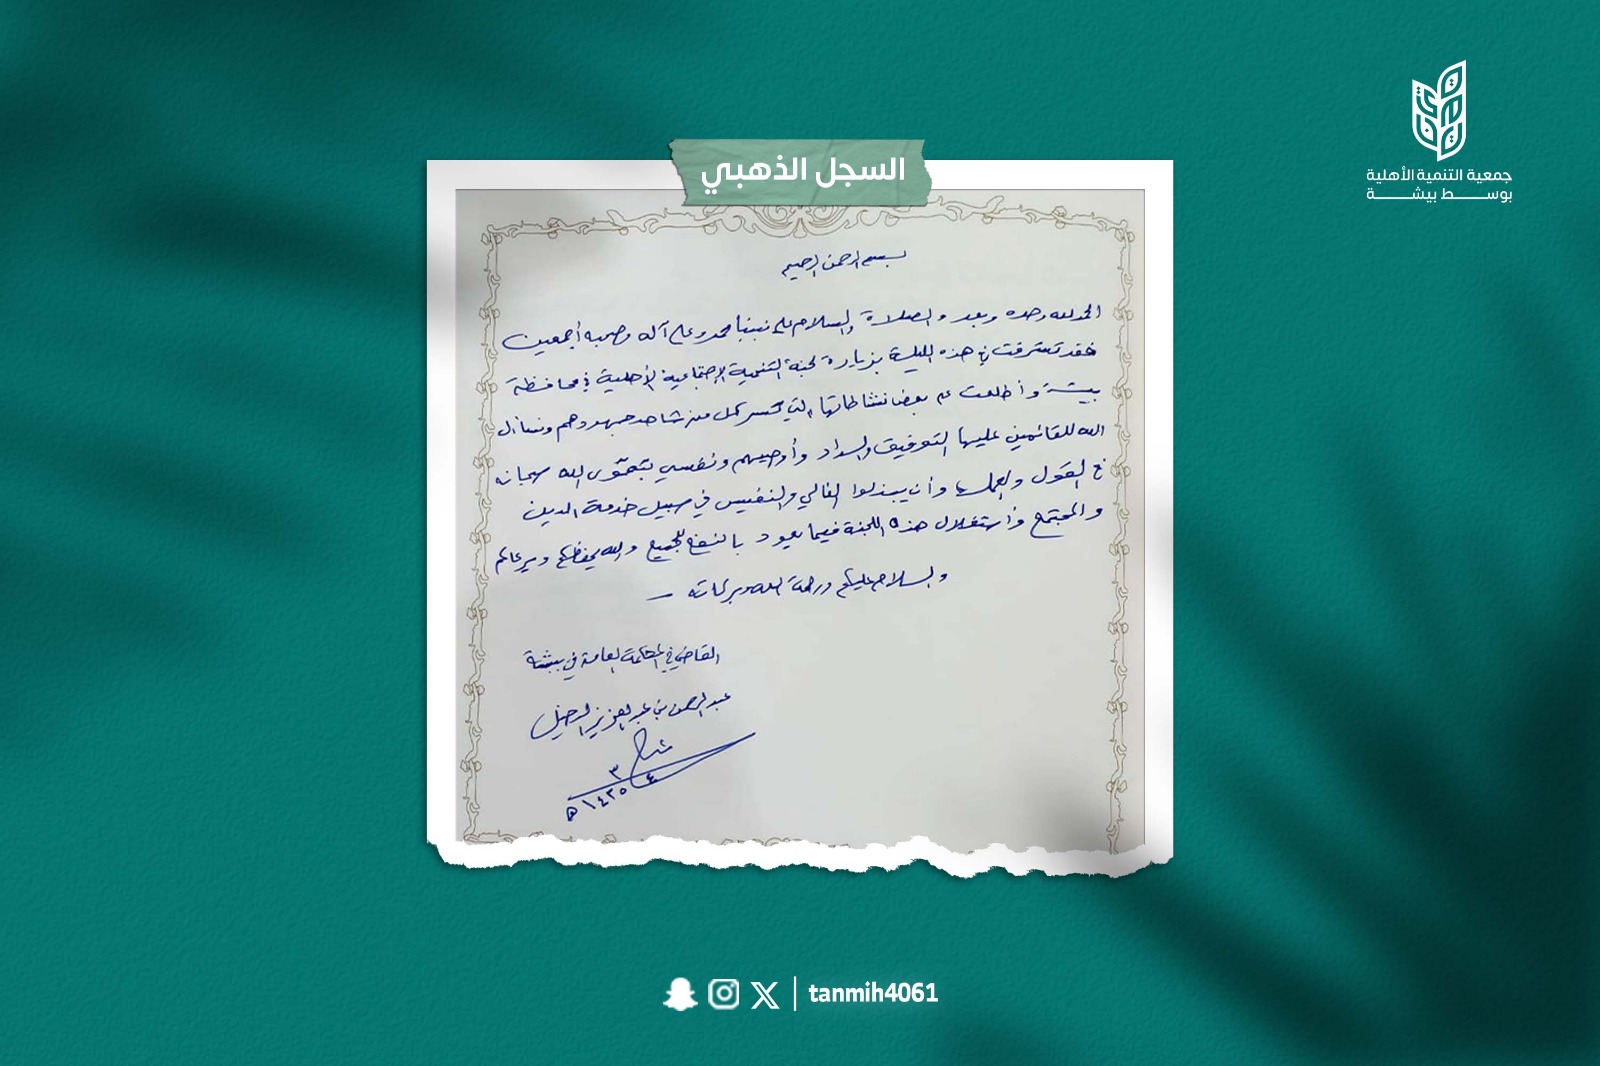 جمعية التنمية الأهلية
بوسط بيشة
السجل الذهبي
بسم الله الرحمن الرحيم
الحمد لله وحده وبعد والصلاة والسلام على نبينا محمد وعلى آله وصحبه أجمعين
فقد تشرفت في هذه الليلة بزيارة لجنة التنمية الإجتماعية الأهلية في محافظة
بيشة وأطلعت على بعض نشاطاتها التي تسر كل من شاهد جهودهم ونسأل
الله للقائمين عليها التوفيق والسداد وأوصيهم ونفسي بتقوى الله سبحانه
في القول والعمل وأن يبذلوا الغالي والنفيس في سبيل خدمة الدين
والمجتمع واستغلال هذه اللجنة فيما يعود بالنفع للجميع والله يحفظكم ويرعاكم
والسلام عليكم ورحمة الله وبركاته
القاضي في المحكمة العامة في بيشة
عبدالرحمن بن عبدالعزيز
٣
٤
١٤٣٥ هـ
tanmih4061